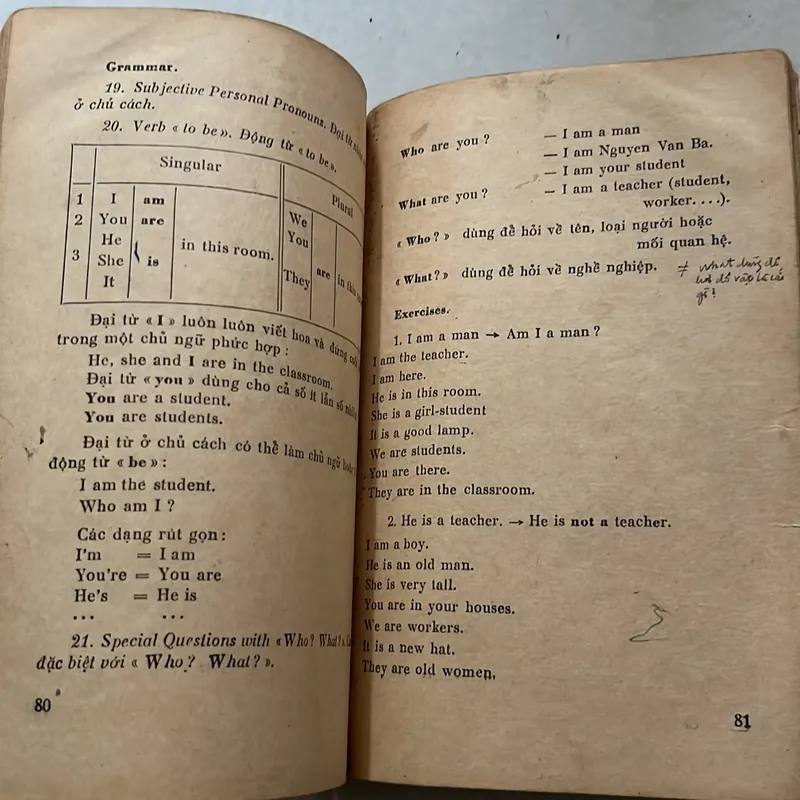 Grammar.
19. Subjective Personal Pronouns. Đại từ
ở chủ cách.
20. Verb « to be ». Động từ « to be ».
Singular Plural
1 I am We
2 You are You are in this
He
3 She is in this room. They
It
Đại từ « I » luôn luôn viết hoa và đứng
trong một chủ ngữ phức hợp :
He, she and I are in the classroom.
Đại từ « you » dùng cho cả số ít lẫn số
You are a student.
You are students.
Đại từ ở chủ cách có thể làm chủ ngữ
động từ « be » :
I am the student.
Who am I ?
Các dạng rút gọn :
I'm = I am
You're = You are
He's = He is
... ...
21. Special Questions with « Who? What? ».
đặc biệt với « Who? What? ».
80
Who are you ? — I am a man
— I am Nguyen Van Ba.
— I am your student
What are you ? — I am a teacher (student,
worker. . . .).
« Who? » dùng để hỏi về tên, loại người hoặc
mối quan hệ.
« What? » dùng để hỏi về nghề nghiệp. ≠ what dùng để
hỏi đồ vật là cái
gì !
Exercises.
1. I am a man → Am I a man ?
I am the teacher.
I am here.
He is in this room.
She is a girl-student
It is a good lamp.
We are students.
You are there.
They are in the classroom.
2. He is a teacher. → He is not a teacher.
I am a boy.
He is an old man.
She is very tall.
You are in your houses.
We are workers.
It is a new hat.
They are old women,
81